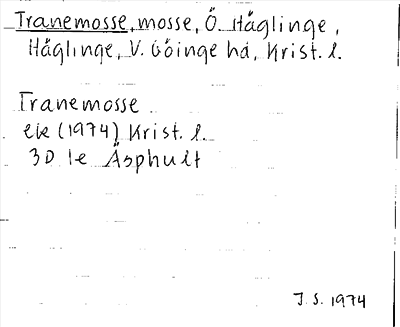 Tranemosse, mosse, Ö. Häglinge,
Häglinge, V. Göinge hd, Krist. l.
Tranemosse
ek (1974) Krist. l.
3D 1e Äsphult
J. S. 1974